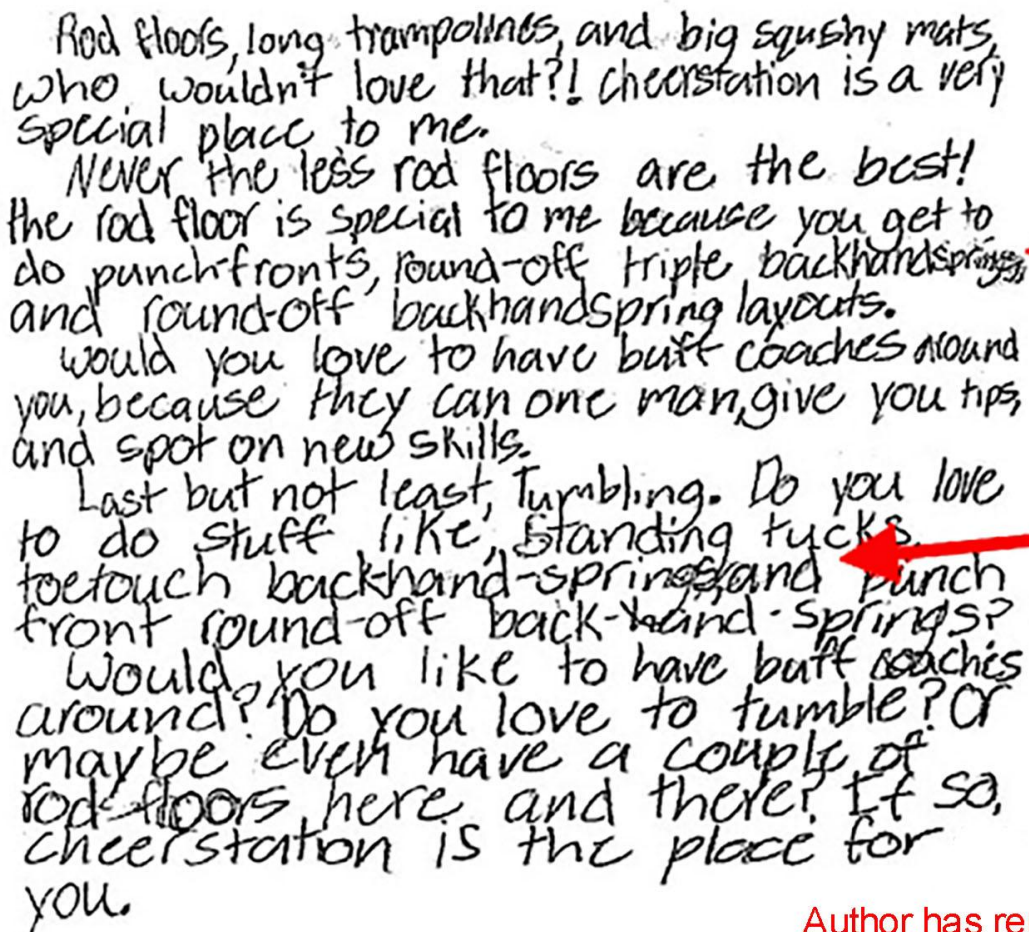 Rod floors, long trampolines, and big squshy mats,
who wouldn't love that?! cheerstation is a very
special place to me.
Never the less rod floors are the best!
the rod floor is special to me because you get to
do punch-fronts, round-off triple backhandsprings,
and round-off backhandspring layouts.
would you love to have buff coaches around
you, because they can one man, give you tips,
and spot on new skills.
Last but not least, Tumbling. Do you love
to do stuff like, standing tucks,
toetouch back-hand-springs, and punch
front round-off back-hand-springs?
Would you like to have buff coaches
around? Do you love to tumble? Or
maybe even have a couple of
rod-floors here and there? If so,
cheerstation is the place for
you.
Author has re